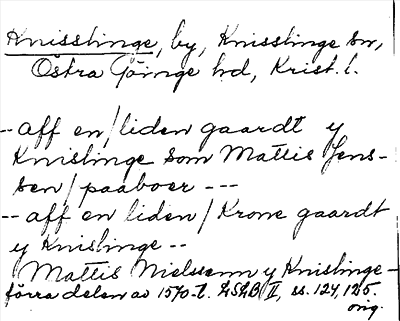 Knisslinge, by, Knisslinge sn,
Östra Göinge hd, Krist. l.
-- aff en / liden gaardt y
Knislinge som Mattis Jens-
sen / paaboer ---
-- aff en liden / Krone gaardt
y Knislinge --
Mattis Nielssenn y Knislinge -
förra delen av 1570-t. LSLB II, ss. 124, 125.
orig.